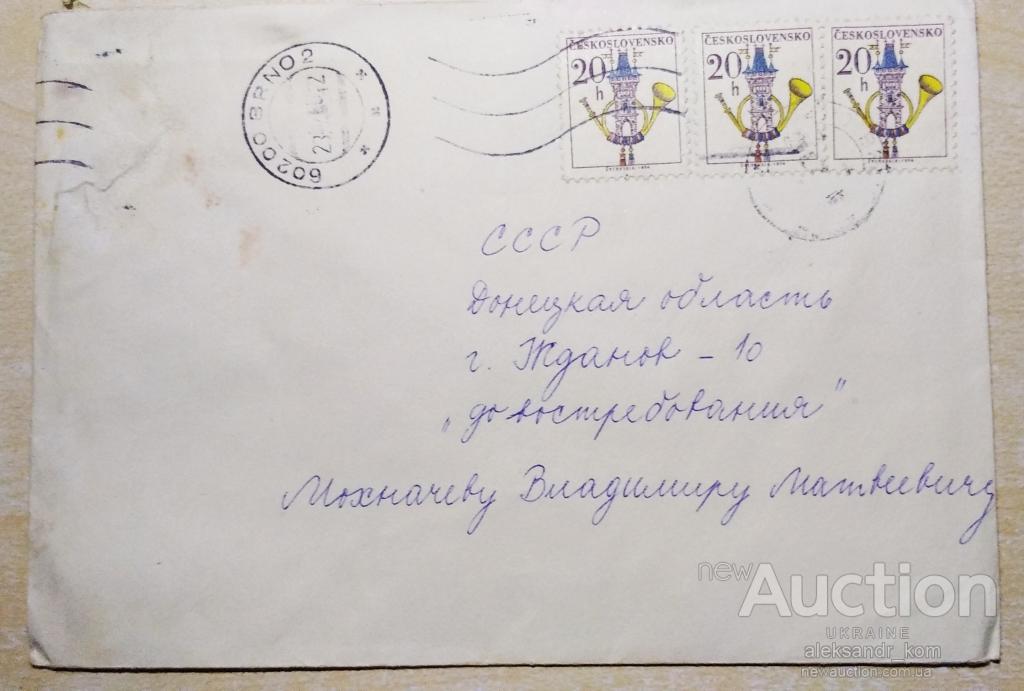 60200 BRNO 2
ČESKOSLOVENSKO
20
h
ČESKOSLOVENSKO
20
h
ČESKOSLOVENSKO
20
h
СССР
Донецкая область
г. Жданов - 10
„до востребования"
Мохначеву Владимиру Матвеевичу
newAuction
UKRAINE
aleksandr_kom
newauction.com.ua